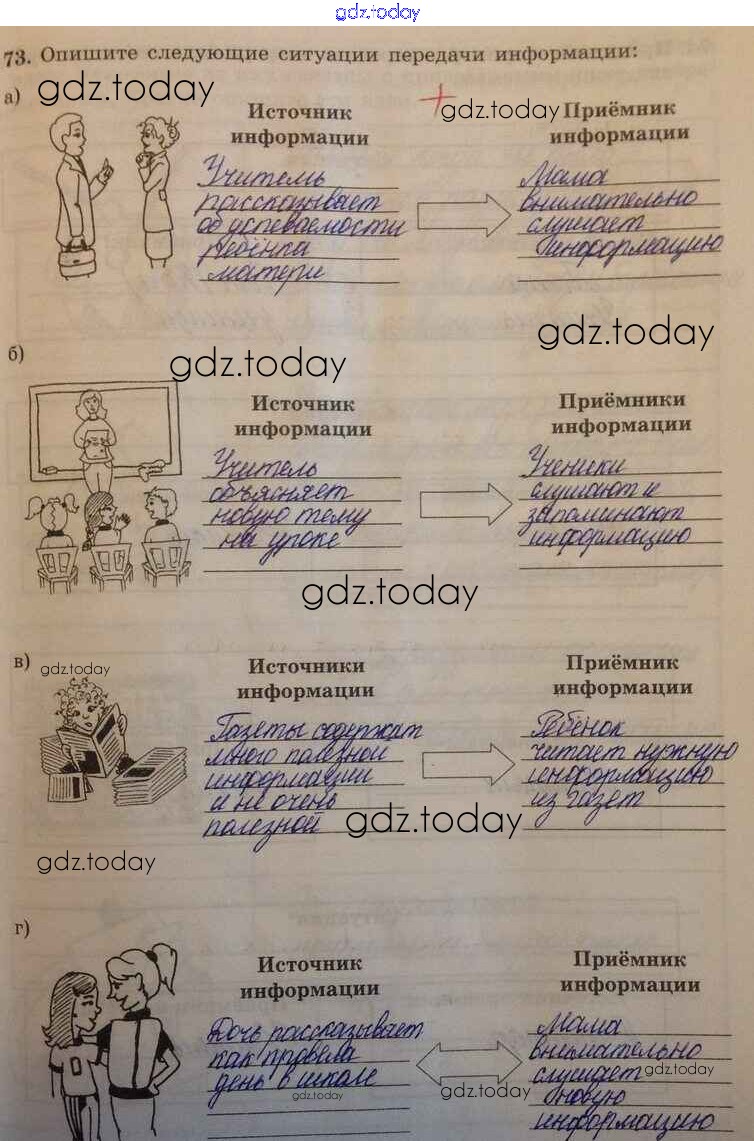 gdz.today
73. Опишите следующие ситуации передачи информации:
gdz.today
а)
Источник
информации
gdz.today
Приёмник
информации
Учитель
рассказывает
об успеваемости
ребенка
матери
Мама
внимательно
слушает
информацию
gdz.today
б)
gdz.today
Источник
информации
Приёмники
информации
Учитель
объясняет
новую тему
на уроке
Ученики
слушают и
запоминают
информацию
gdz.today
в)
gdz.today
Источники
информации
Приёмник
информации
Газеты содержат
много полезной
информации
и не очень
полезной
Ребенок
читает нужную
информацию
из газет
gdz.today
gdz.today
г)
Источник
информации
Приёмник
информации
Дочь рассказывает
как провела
день в школе
Мама
внимательно
слушает
новую
информацию
gdz.today
gdz.today
gdz.today